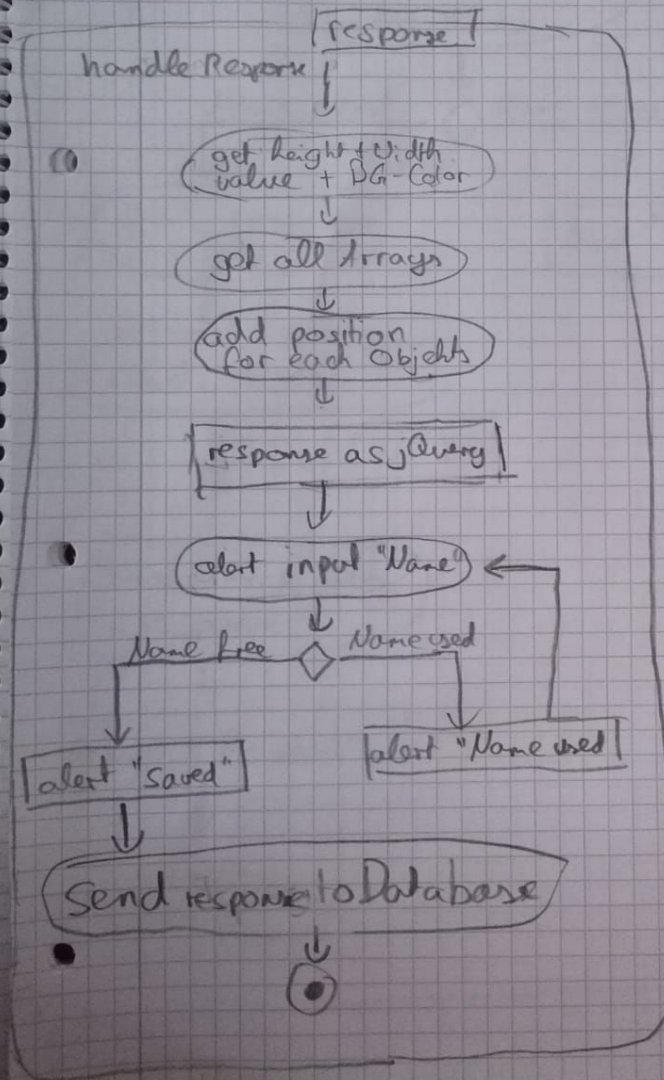 response
handle Response
get height + Width
value + BG-Color
get all Arrays
add position
for each Objekts
response as jQuery
alert input "Name"
Name free
Name used
alert "Name used
alert "Saved"
Send response to Database